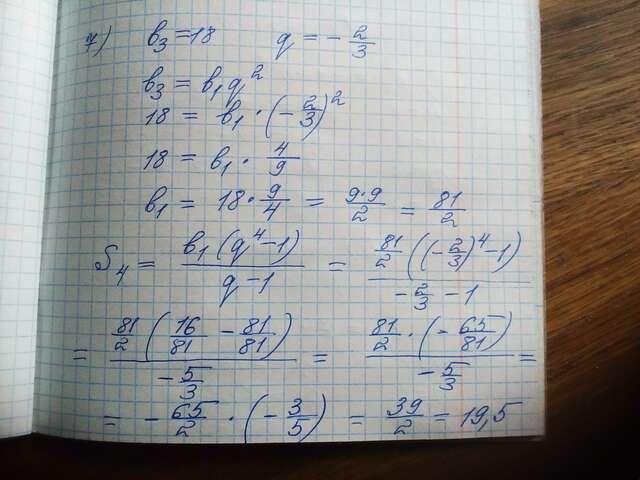 7) b₃ = 18 q = -2/3
b₃ = b₁q²
18 = b₁ · (-2/3)²
18 = b₁ · 4/9
b₁ = 18 · 9/4 = 9·9/2 = 81/2
S₄ = b₁(q⁴-1)/q-1 = 81/2((-2/3)⁴-1)/-2/3-1
= 81/2(16/81-81/81)/-5/3 = 81/2·(-65/81)/-5/3 =
= -65/2 · (-3/5) = 39/2 = 19,5